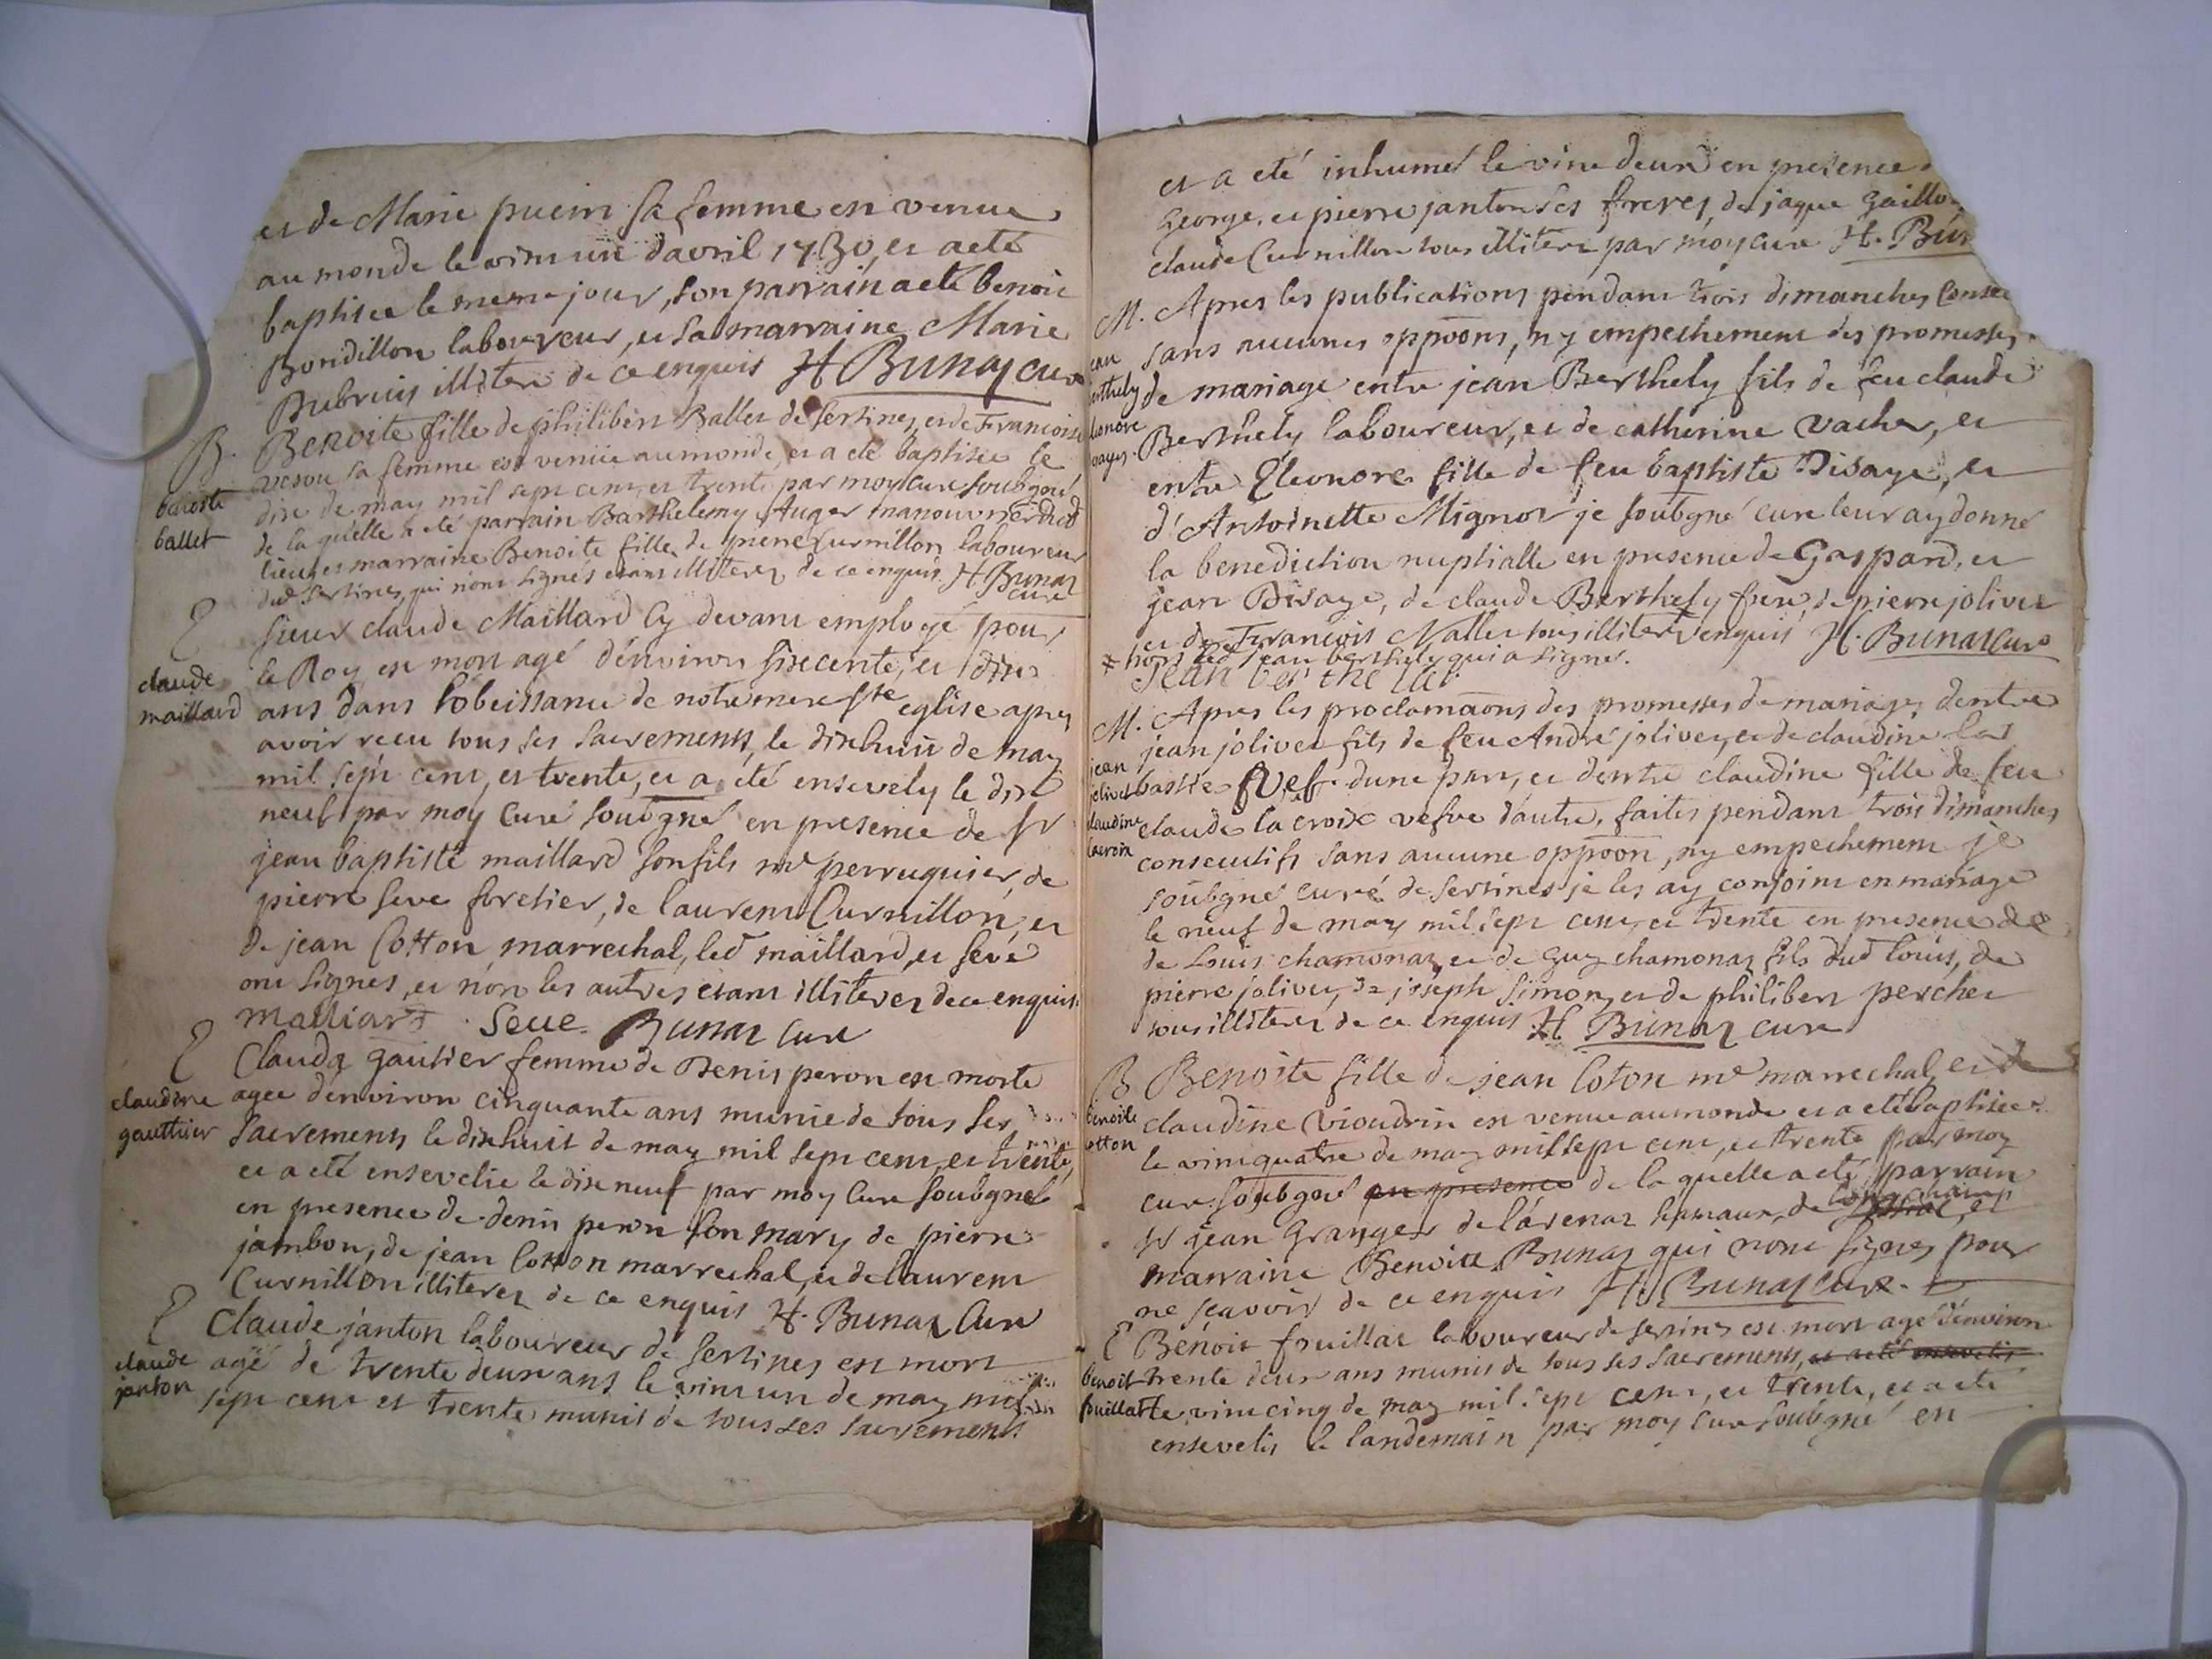 et de Marie puein sa femme est venue
au monde le vint un d'avril 1730, et a eté
baptisee le meme jour, son parrain a eté benoit
Bondillon laboureur, et sa marraine Marie
Dubruis illitere de ce enquis H Bunaz curé
B. Benoite fille de philibert Ballet de sertines, et de Francoise
vesou sa femme est venüe au monde, et a eté baptisee le
benoite
ballet
dix de may mil sept cent, et trente par moy curé soubgné
de la quelle a eté parrain Barthelemy Auger manouvrier dud
lieu, et marraine Benoite fille de pierre Curnillon laboureur
dud sertines, qui n'ont signés etant illiteres de ce enquis H Bunaz
curé
E
sieur claude Maillard cy devant employé pour
claude
maillard
le Roy, est mort agé d'environ sixcente, et dix
ans dans l'obeissance de notre mere ste eglise apres
avoir recu tous ses sacrements, le dixhuit de may
mil sept cent, et trente, et a eté ensevely le dix
neuf par moy curé soubgné en presence de sr
jean baptiste maillard son fils me perruquier, de
pierre seve foretier, de laurent Curnillon, et
de jean Cotton marrechal, led maillard, et seve
ont signes, et non les autres etant illiteres de ce enquis
Malliard Seve Bunaz curé
E
Claudq gautier femme de Denis peron est morte
claudine
gauthier
agee d'environ cinquante ans munie de tous ses
sacrements le dixhuit de may mil sept cent, et trente,
et a eté ensevelie le dixneuf par moy Curé soubgné
en presence de denis peron son mary de pierre
jambon, de jean Cotton marrechal, et de laurent
Curnillon illiteres de ce enquis H. Bunaz Curé
E
Claude janton laboureur de sertines est mort
claude
janton
agé de trente deux ans le vint un de may mil
sept cent et trente munit de tous ses sacrements
et a eté inhumé le vint deux en presence
George, et pierre janton ses freres, de jaque Gaillo
claude Curnillon tous illitere par moy curé H. Bun
M. Apres les publications pendant trois dimanches Conse
sans aucunes oppoons, ny empechement des promesses
ean
erthely
leonore
isaye
de mariage entre jean Berthely fils de feu claude
Berthely laboureur, et de catherine vacher, et
entre Eleonore fille de feu baptiste Disaye, et
d'Antoinette Mignot je soubgné curé leur ay donné
la benediction nuptialle en presence de Gaspard, et
jean Disaye, de claude Berthely frere, de pierre jolivet
et de Francois Nallet tous illiteres enquis H. Bunaz Curé
# hors led jean berthely qui a signé.
Jean
M. Apres les proclamaons des promesses de mariages d'entre
jean
jolivet
jean jolivet fils de feu André jolivet, et de claudine la
bastie vef d'une part, et d'entre claudine fille de feu
claudine
lacroix
claude la croix vefve d'autre, faites pendant trois dimanches
consecutifs sans aucune oppoon, ny empechement je
soubgné curé de sertines je les ay conjoint en mariage
le neuf de may mil sept cent, et trente en presence de
de Louis chamonaz, et de Guy chamonaz fils dud louis, de
pierre jolivet, de joseph simon, et de philibert perchet
tous illiteres de ce enquis H Bunaz curé
B Benoite fille de jean Coton me marrechal, et de
benoite
cotton
claudine Vioudrin est venue au monde et a eté baptisee
le vint quatre de may mil sept cent, et trente par moy
curé soubgné en presence de la quelle a eté parrain
sr jean Granger de l'arenaz hamaux, de et
marraine Benoite Bunaz qui n'ont signes pour
ne scavoir de ce enquis H. Bunaz Curé.
E Benoit fouillat laboureur de sertines est mort agé d'environ
benoit
fouillat
trente deux ans munis de tous ses sacrements, et a eté ensevelis
le vint cinq de may mil sept cent, et trente, et a eté
ensevelis le landemain par moy Curé soubgné en